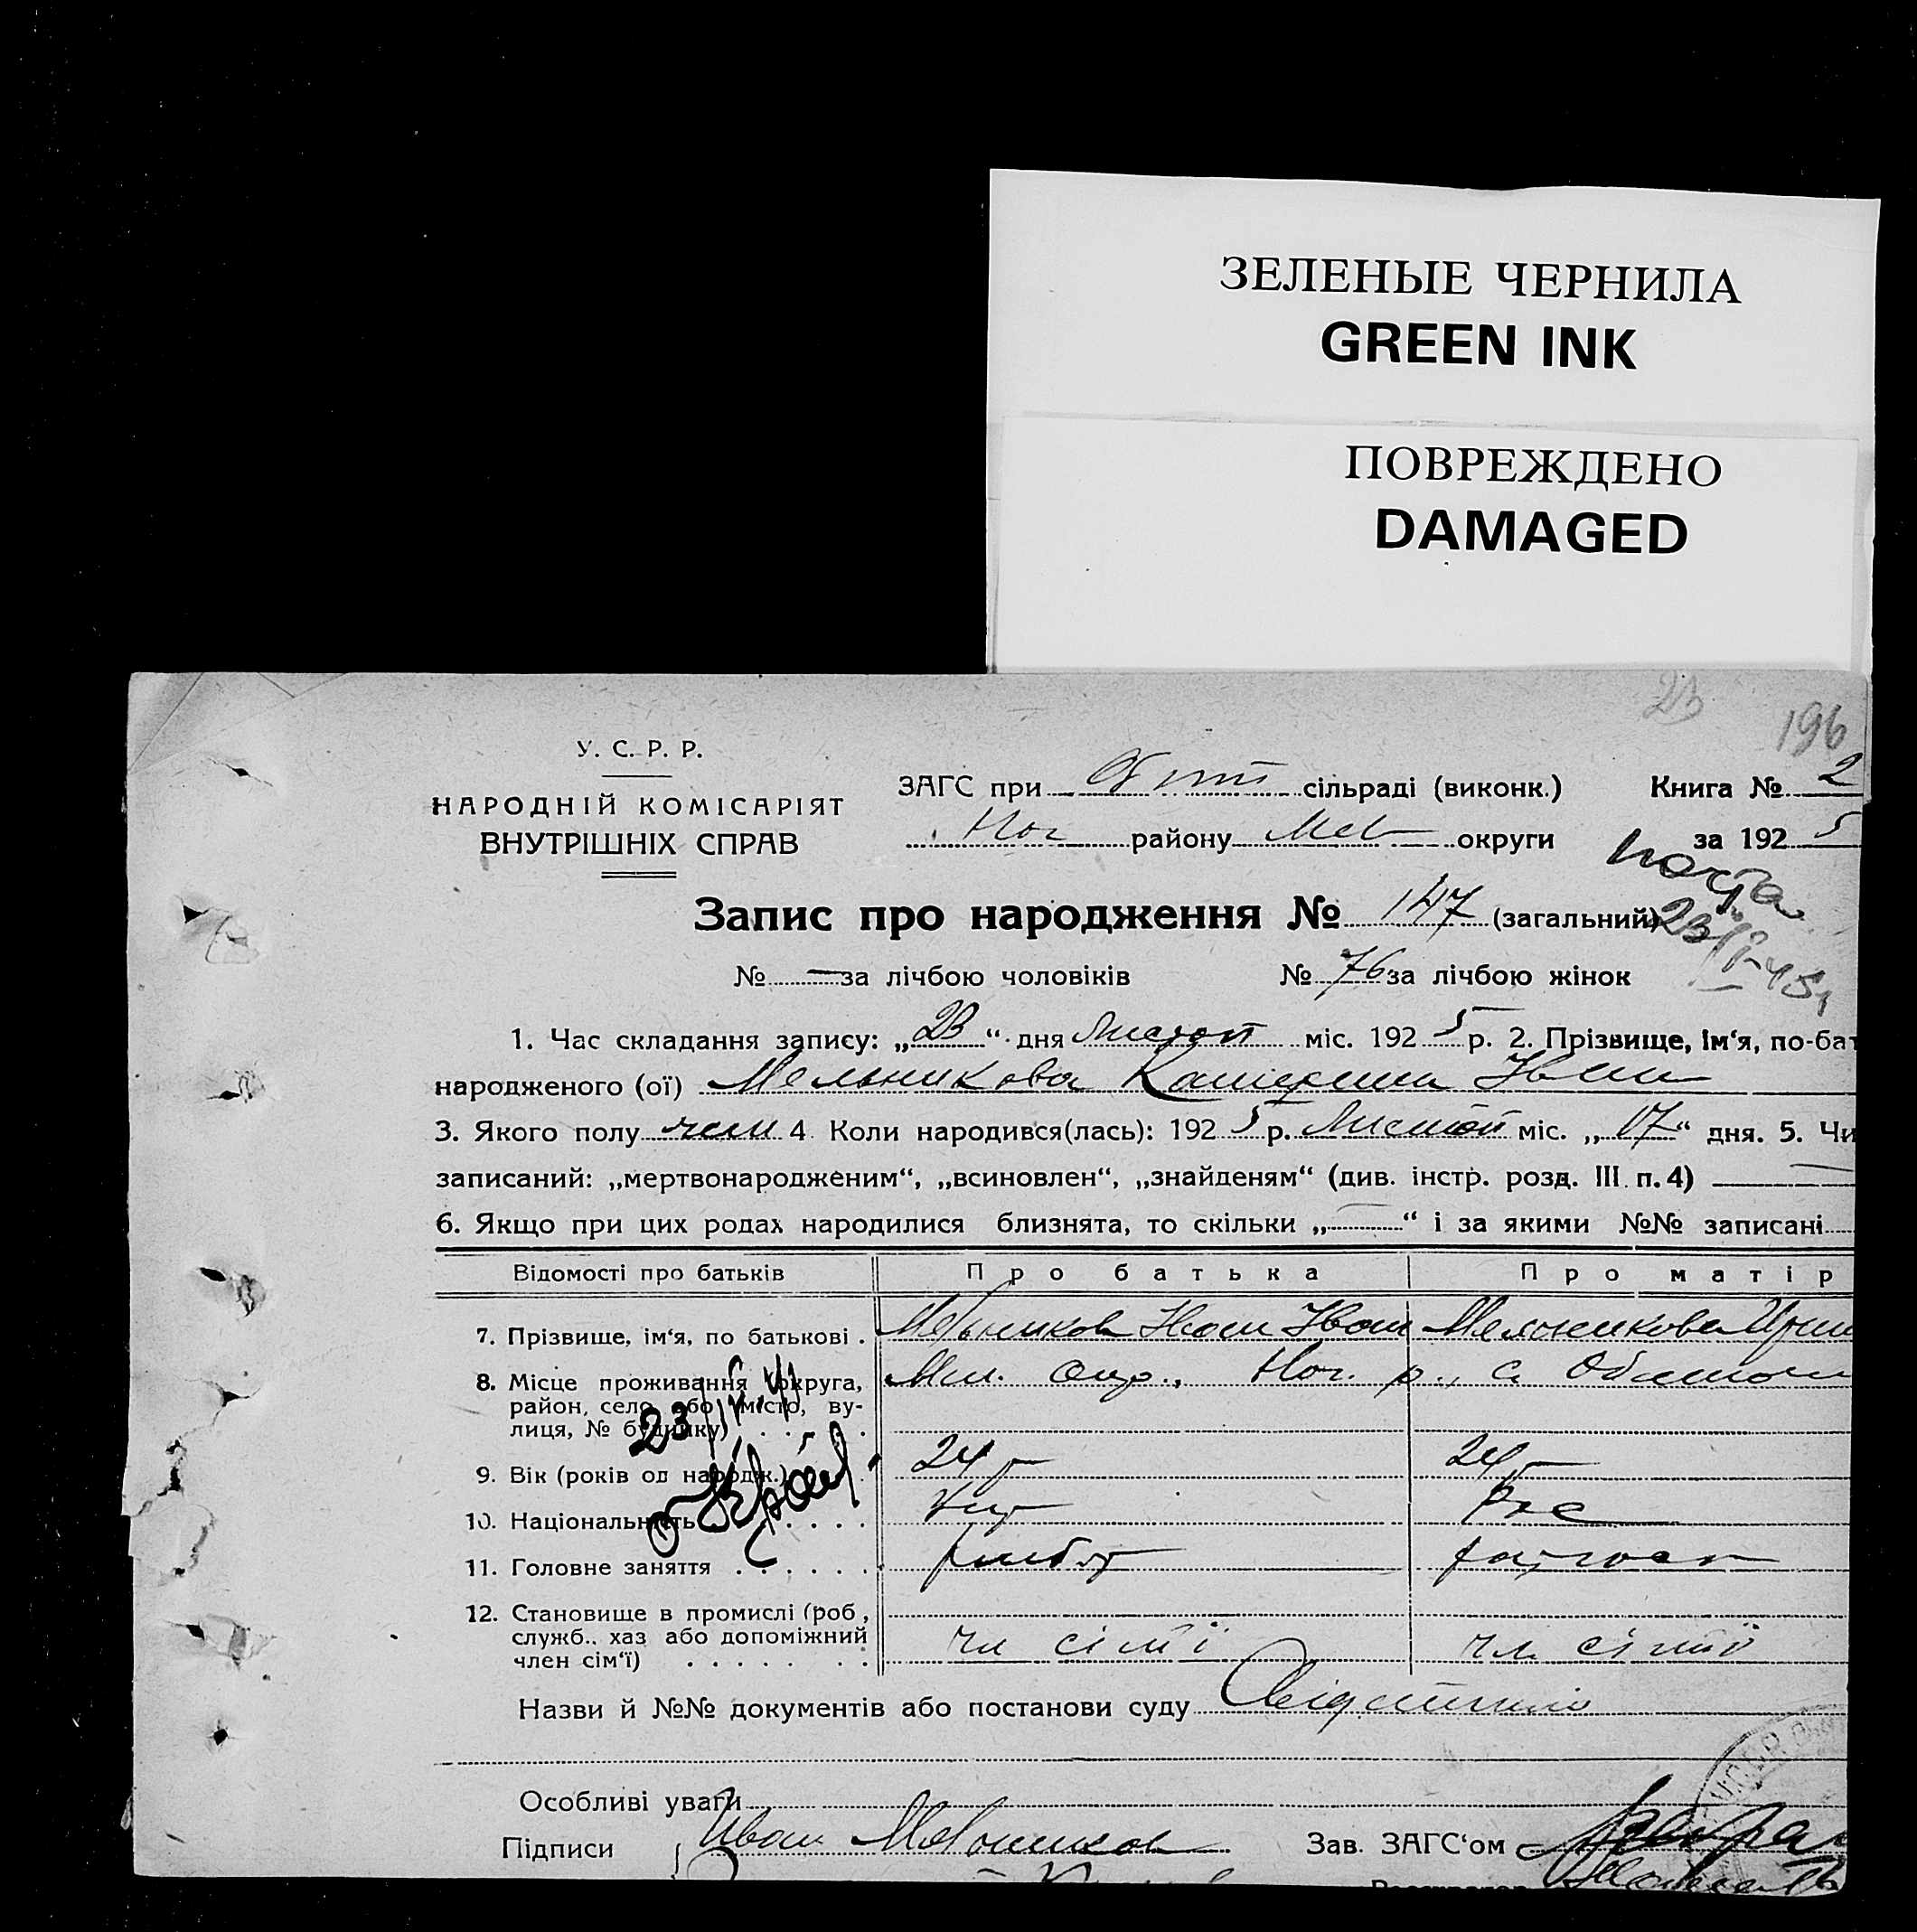 ЗЕЛЕНЫЕ ЧЕРНИЛА
GREEN INK
ПОВРЕЖДЕНО
DAMAGED
23
196
У. С. Р. Р.
НАРОДНІЙ КОМІСАРІЯТ
ВНУТРІШНІХ СПРАВ
ЗАГС при сільраді (виконк.) Книга № 2
Ног району Мел округи за 1925
Запис про народження № 147 (загальний)
№ — за лічбою чоловіків № 76 за лічбою жінок
1. Час складання запису: „23“ дня Листоп міс. 1925 р. 2. Прізвище, ім‘я, по-бат
народженого (ої) Мельникова Катерина Іван
3. Якого полу жен 4. Коли народився(лась): 1925 р. Листоп міс. „17“ дня. 5. Чи
записаний: „мертвонародженим“, „всиновлен“, „знайденям“ (див. інстр. розд. III. п. 4) —
6. Якщо при цих родах народилися близнята, то скільки „—“ і за якими №№ записані
Відомості про батьків Про батька Про матір
7. Прізвище, ім‘я, по батькові . Мельников Іван Іван Мельникова Ирин
8. Місце проживання (округа, Мел. окр., Ног. р., с.
район, село або місто, ву-
лиця, № будинку)
9. Вік (років од народж.) 24 р 24 р
10. Національність Укр Рос
11. Головне заняття
12. Становище в промислі (роб,
служб.. хаз або допоміжний чл сімї чл. сімї
член сім‘ї)
Назви й №№ документів або постанови суду
Особливі уваги
Підписи Иван Мельников Зав. ЗАГС‘ом